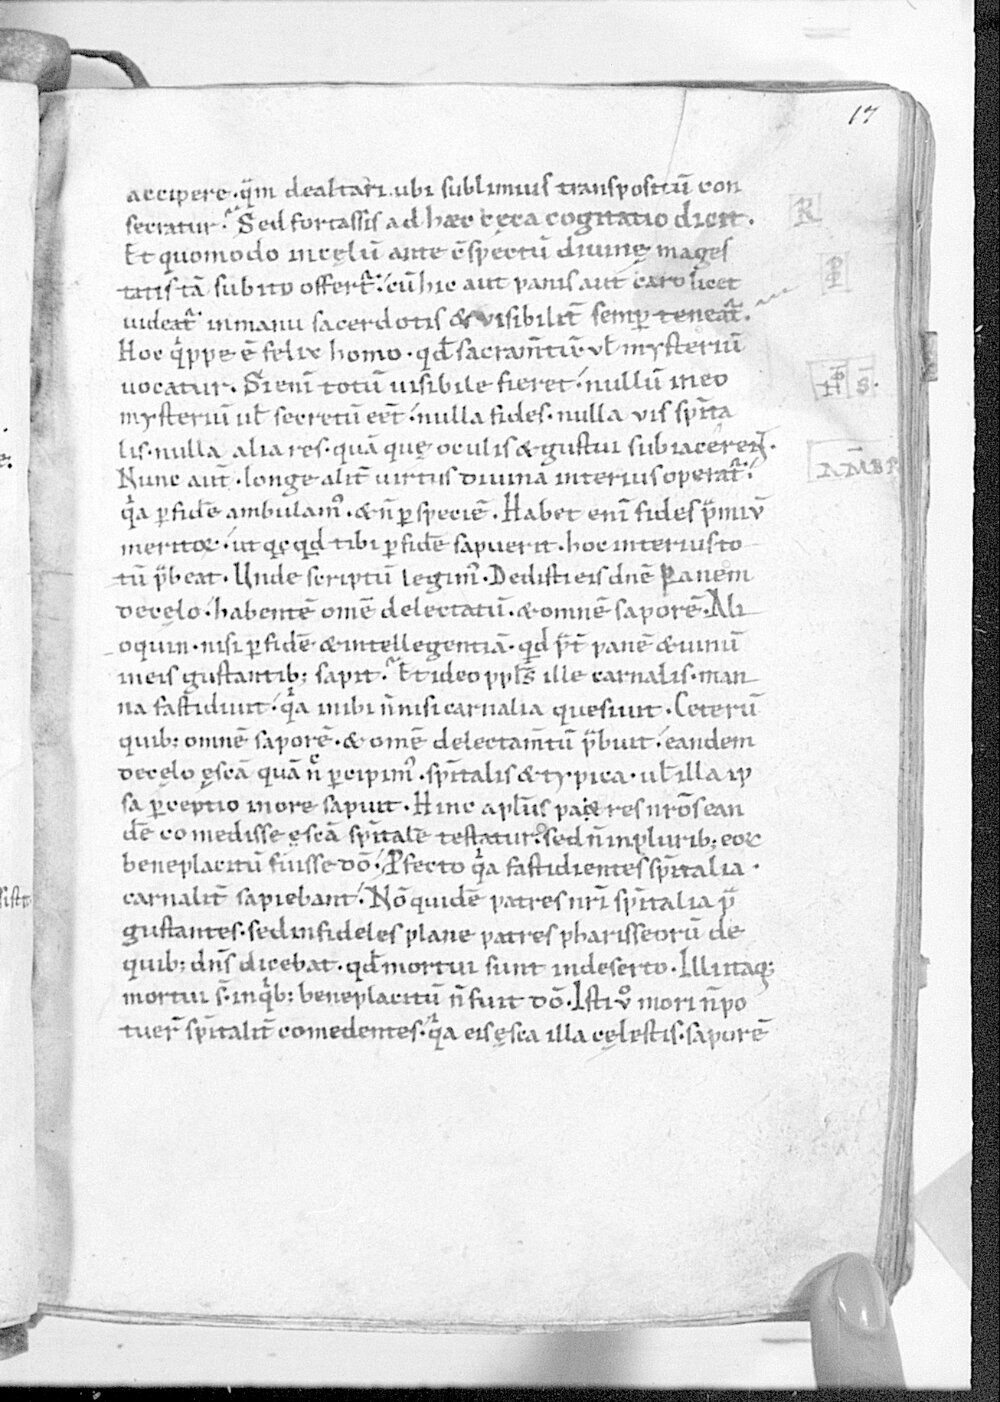 17
accipere · qm̄ de altari ubi sublimius transpositū con
secratur. Sed fortassis ad hæc cęca cogitatio dicit.
Et quomodo in cęlū ante c̄spectū divinę mages
tatis tā subito offert̄. cū hic aut panis aut caro licet
uideat̄ in manu sacerdotis & visibilit̄ semp teneat̄.
Hoc q̄ppe ē felix homo · qd̄ sacram̄tū ul̄ mysteriū
uocatur. Si enī totū uisibile fieret nullū in eo
mysteriū ul̄ secretū eēt nulla fides · nulla vis spīta
lis · nulla alia res · quā quę oculis & gustui subiacerent.
Nunc aūt · longe alit̄ uirtus divina interius operat̄.
q̄a p fidē ambulam᷒ · & n̄ p speciē. Habet enī fides p̄miū
meritoꝝ ut qcqd tibi p fidē sapuerit · hoc interius to
tū p̄beat. Unde scriptū legim᷒ · Dedisti eis dn̄e Panem
de cęlo habentē omē delectatū · & omnē saporē · Ali
oquin · nisi p fidē & intellegentiā · qd p̄t panē & uinū
in eis gustantib; sapit. Et ideo ppls̄ ille carnalis · man
na fastidiuit q̄a in ibi n̄ nisi carnalia quesiuit · Ceterū
quib; omnē saporē · & omē delectam̄tū p̄buit eandem
de cęlo ęscā quā n̄c pcipim᷒ · spītalis & typica · ul̄ illa ip
sa pceptio in ore sapuit · Hinc apl̄us patres nrōs ean
dē comedisse ęscā spītalē testatur. sed n̄ in plurib; eoꝝ
beneplacitū fuisse dō. Pfecto q̄a fastidientes spītalia ·
carnalit̄ sapiebant. Nō quidē patres nr̄i spītalia p̄
gustantes · sed infideles plane patres pharisseorū de
quib; dn̄s dicebat · qd̄ mortui sunt in deserto · Illi itaq;
mortui s̄ · in q̄b; beneplacitū n̄ fuit dō · Isti v᷒ mori n̄ po
tuer̄ spītalit̄ comedentes · q̄a eis ęsca illa cęlestis · saporē
R
P
AMBR